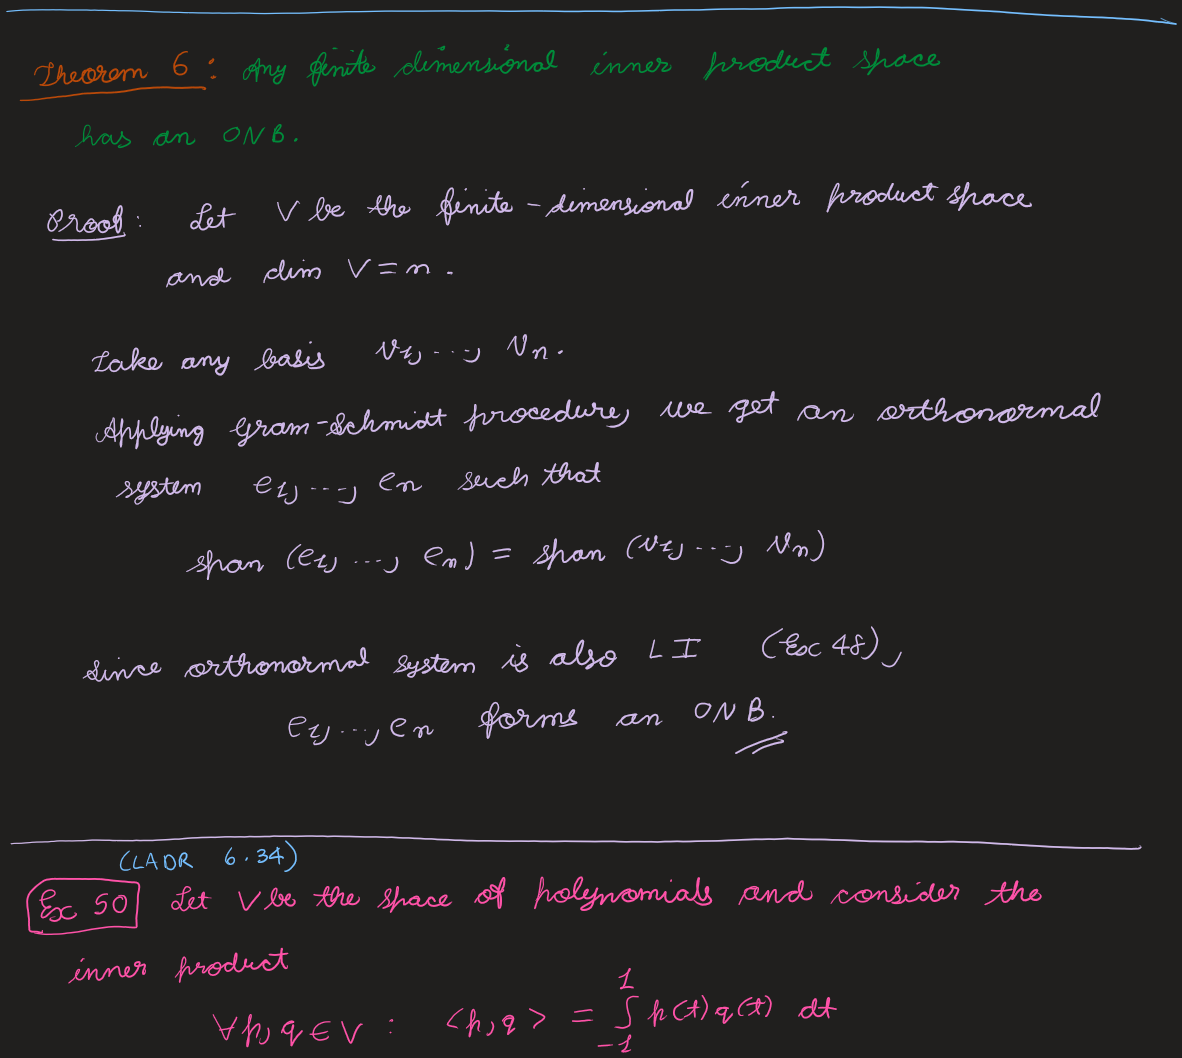 Theorem 6 : Any finite dimensional inner product space
has an ONB.
Proof : Let V be the finite-dimensional inner product space
and dim V = n.
Take any basis v₁, ..., vₙ.
Applying Gram-Schmidt procedure, we get an orthonormal
system e₁, ..., eₙ such that
span (e₁, ..., eₙ) = span (v₁, ..., vₙ)
Since orthonormal system is also LI (Exc 48),
e₁, ..., eₙ forms an ONB.
(LADR 6.34)
Exc 50 Let V be the space of polynomials and consider the
inner product
∀p, q ∈ V : <p, q> = ∫₋₁¹ p(t) q(t) dt